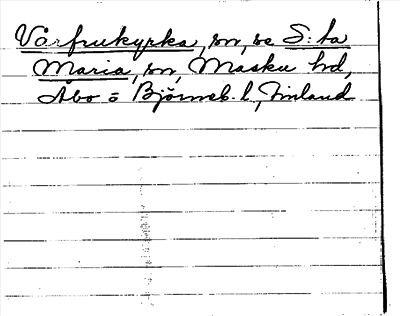 Vårfrukyrka, sn, se S:ta
Maria, sn, Masku hd,
Åbo = Björneb. l, Finland